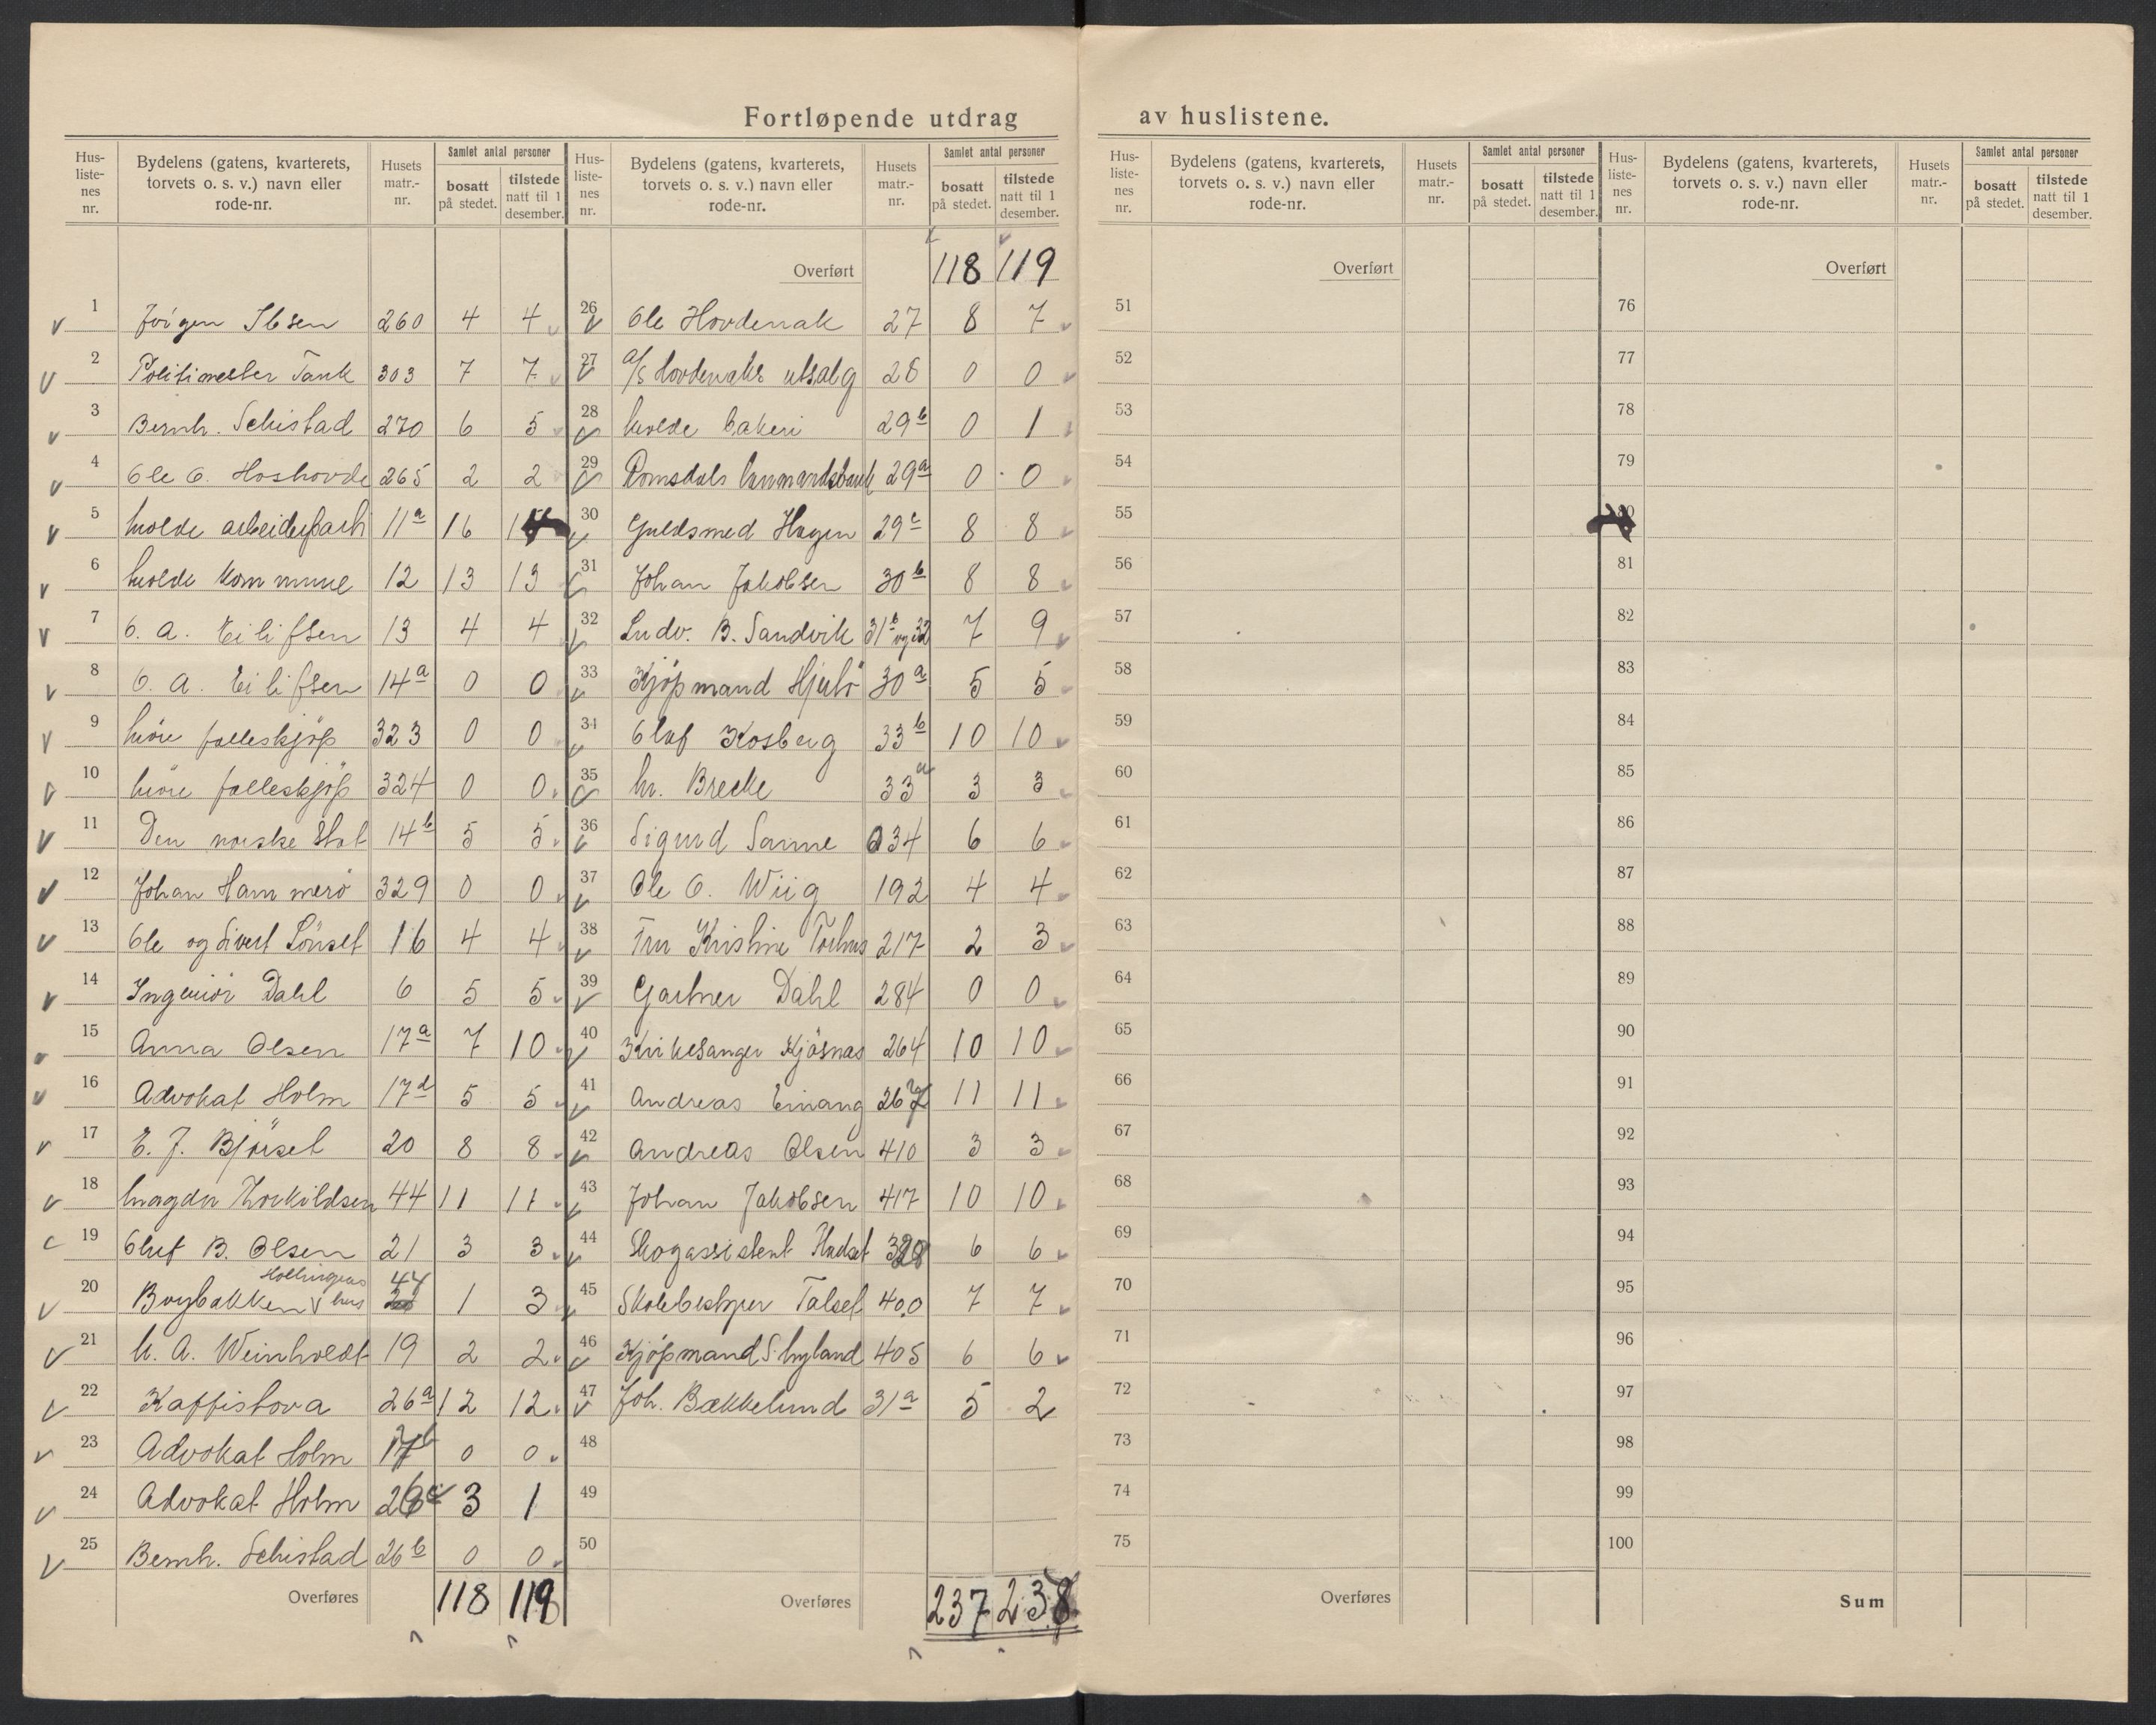 Fortløpende utdrag av huslistene.
Hus-listenes nr. | Bydelens (gatens, kvarterets, torvets o. s. v.) navn eller rode-nr. | Husets matr.-nr. | Samlet antal personer: bosatt på stedet. | tilstede natt til 1 desember.
1 Jörgen Ibsen 260 4 4
2 Politimester Tank 303 7 7
3 Bernh. Schistad 270 6 5
4 Ole O. Hoshovde 265 2 2
5 Molde arbeiderparti 11a 16
6 Molde kommune 12 13 13
7 O. A. Eilifsen 13 4 4
8 O. A. Eilifsen 14a 0 0
9 Möre felleskjöp 323 0 0
10 Möre felleskjöp 324 0 0
11 Den norske Stat 14b 5 5
12 Johan Hammerö 329 0 0
13 Ole og Sivert Lönset 16 4 4
14 Ingeniör Dahl 6 5 5
15 Anna Olsen 17a 7 10
16 Advokat Holm 17d 5 5
17 E. J. Björset 20 8 8
18 Magda Thorkildsen 44 11 11
19 Oluf B. Olsen 21 3 3
20 Boybakken hus 44 1 3
21 M. A. Weinholdt 19 2 2
22 Kaffistova 26a 12 12
23 Advokat Holm 17b 0 0
24 Advokat Holm 26c 3 1
25 Bernh. Schistad 26b 0 0
Overføres 118 119
Hus-listenes nr. | Bydelens (gatens, kvarterets, torvets o. s. v.) navn eller rode-nr. | Husets matr.-nr. | Samlet antal personer: bosatt på stedet. | tilstede natt til 1 desember.
Overført 118 119
26 Ole Hovdenak 27 8 7
27 A/S Hovdenaks utsalg 28 0 0
28 Molde bakeri 29b 0 1
29 Romsdals Kjømandsbank 29a 0 0
30 Guldsmed Hagen 29c 8 8
31 Johan Jakobsen 30b 8 8
32 Ludv. B. Sandvik 31b og 32 7 9
33 Kjöpmand Hjelö 30a 5 5
34 Oluf Kosberg 33b 10 10
35 M. Brecke 33a 3 3
36 Sigurd Sanne 34 6 6
37 Ole O. Wiig 192 4 4
38 Fru Kristine Torhus 217 2 3
39 Gartner Dahl 284 0 0
40 Kirkesanger Kjösnæs 264 10 10
41 Andreas Einang 267 11 11
42 Andreas Olsen 410 3 3
43 Johan Jakobsen 417 10 10
44 Skogassistent 6 6
45 Skolebestyrer Talset 400 7 7
46 Kjöpmand S. Myland 405 6 6
47 Joh. Bækkelund 31a 5 2
48
49
50
Overføres 237 238
Hus-listenes nr. | Bydelens (gatens, kvarterets, torvets o. s. v.) navn eller rode-nr. | Husets matr.-nr. | Samlet antal personer: bosatt på stedet. | tilstede natt til 1 desember.
Overført
51
52
53
54
55
56
57
58
59
60
61
62
63
64
65
66
67
68
69
70
71
72
73
74
75
Overføres
Hus-listenes nr. | Bydelens (gatens, kvarterets, torvets o. s. v.) navn eller rode-nr. | Husets matr.-nr. | Samlet antal personer: bosatt på stedet. | tilstede natt til 1 desember.
Overført
76
77
78
79
80
81
82
83
84
85
86
87
88
89
90
91
92
93
94
95
96
97
98
99
100
Sum